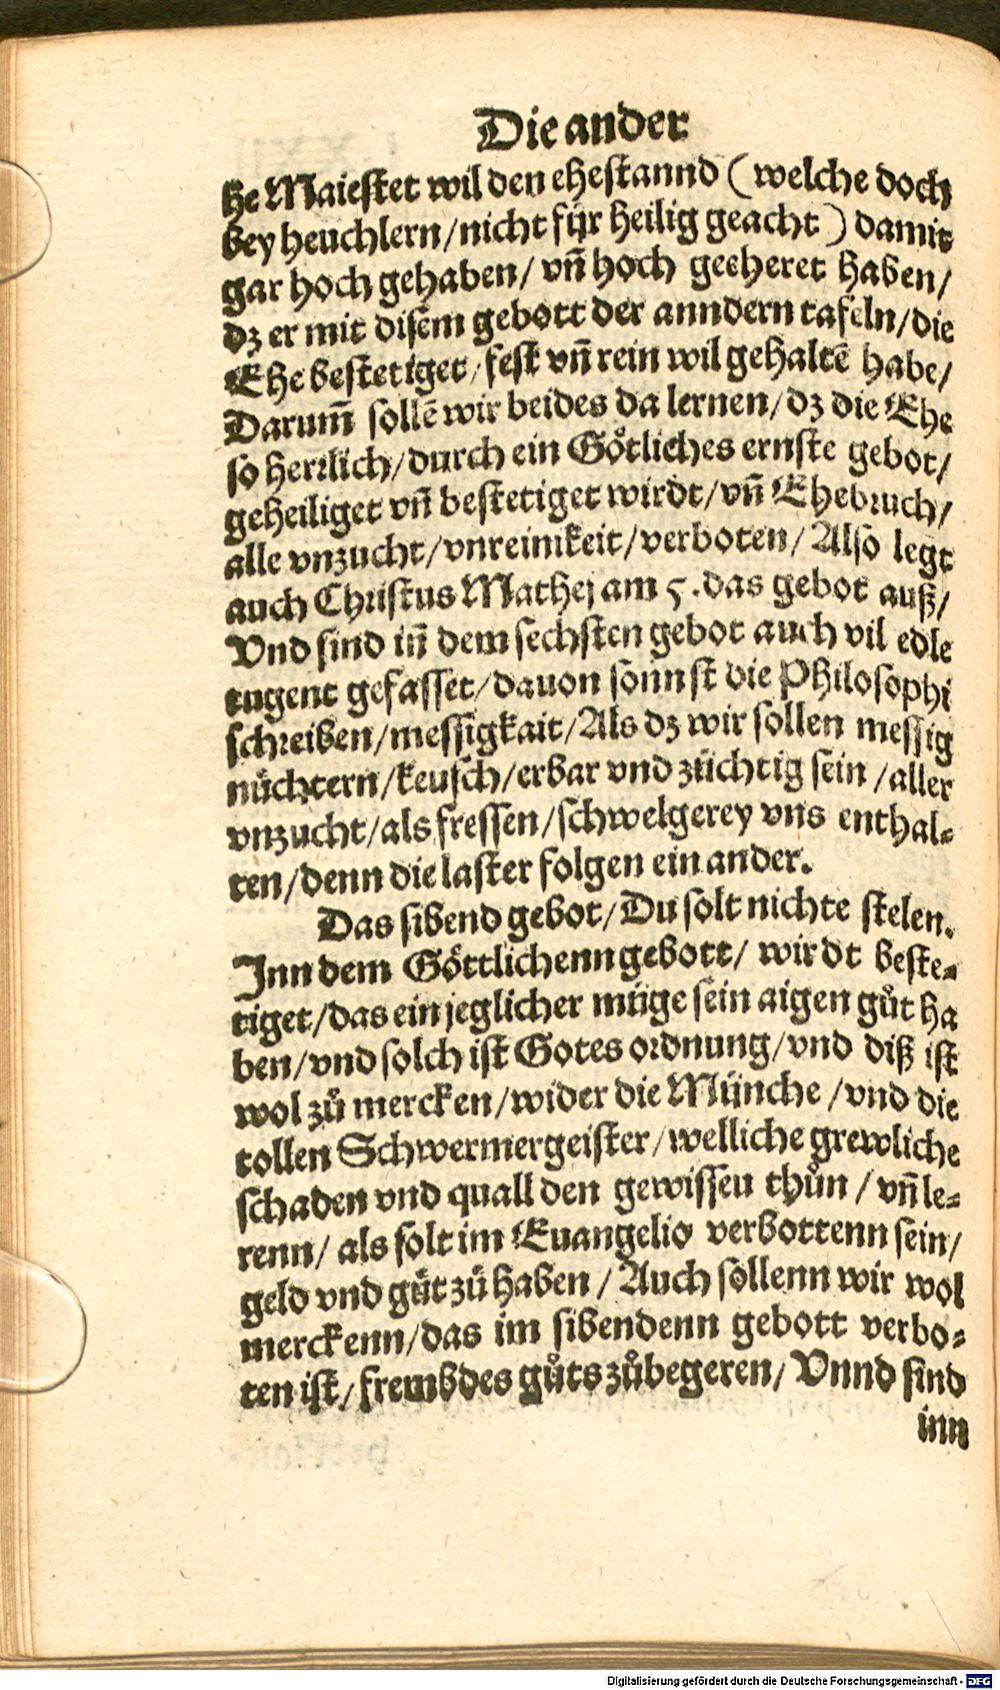 Die ander
he Maiestet wil den ehestannd (welche doch
bey heuchlern/nicht für heilig geacht) damit
gar hoch gehaben/ vñ hoch geeheret haben/
dz er mit disem gebott der anndern tafeln/die
Ehe bestetiget/fest vñ rein wil gehaltē habe/
Darum̄ sollē wir beides da lernen/dz die Ehe
so herrlich/durch ein Gőtliches ernste gebot/
geheiliget vñ bestetiget wirdt/vñ Ehebruch/
alle vnzucht/vnreinikeit/verboten/Also legt
auch Christus Mathej am 5.das gebot auß/
Vnd sind iñ dem sechsten gebot auch vil edle
tugent gefasset/dauon sonnst die Philosophi
schreiben/messigkait/Als dz wir sollen messig
nüchtern/keusch/erbar vnd züchtig sein/aller
vnzucht/als fressen/schwelgerey vns enthal-
ten/denn die laster folgen ein ander.
Das sibend gebot/Du solt nichte stelen.
Inn dem Göttlichenn gebott/ wirdt beste-
tiget/das ein jeglicher müge sein aigen gůt ha
ben/vnd solch ist Gotes ordnung/vnd diß ist
wol zů mercken/wider die Münche/vnd die
tollen Schwermergeister/welliche grewliche
schaden vnd quall den gewisseu thůn/vñ le-
renn/ als solt im Euangelio verbottenn sein/
geld vnd gůt zů haben/ Auch sollenn wir wol
merckenn/das im sibendenn gebott verbo-
ten ist/frembdes gůts zů begeren/ Vnnd sind
inn
Digitalisierung gefördert durch die Deutsche Forschungsgemeinschaft - DFG